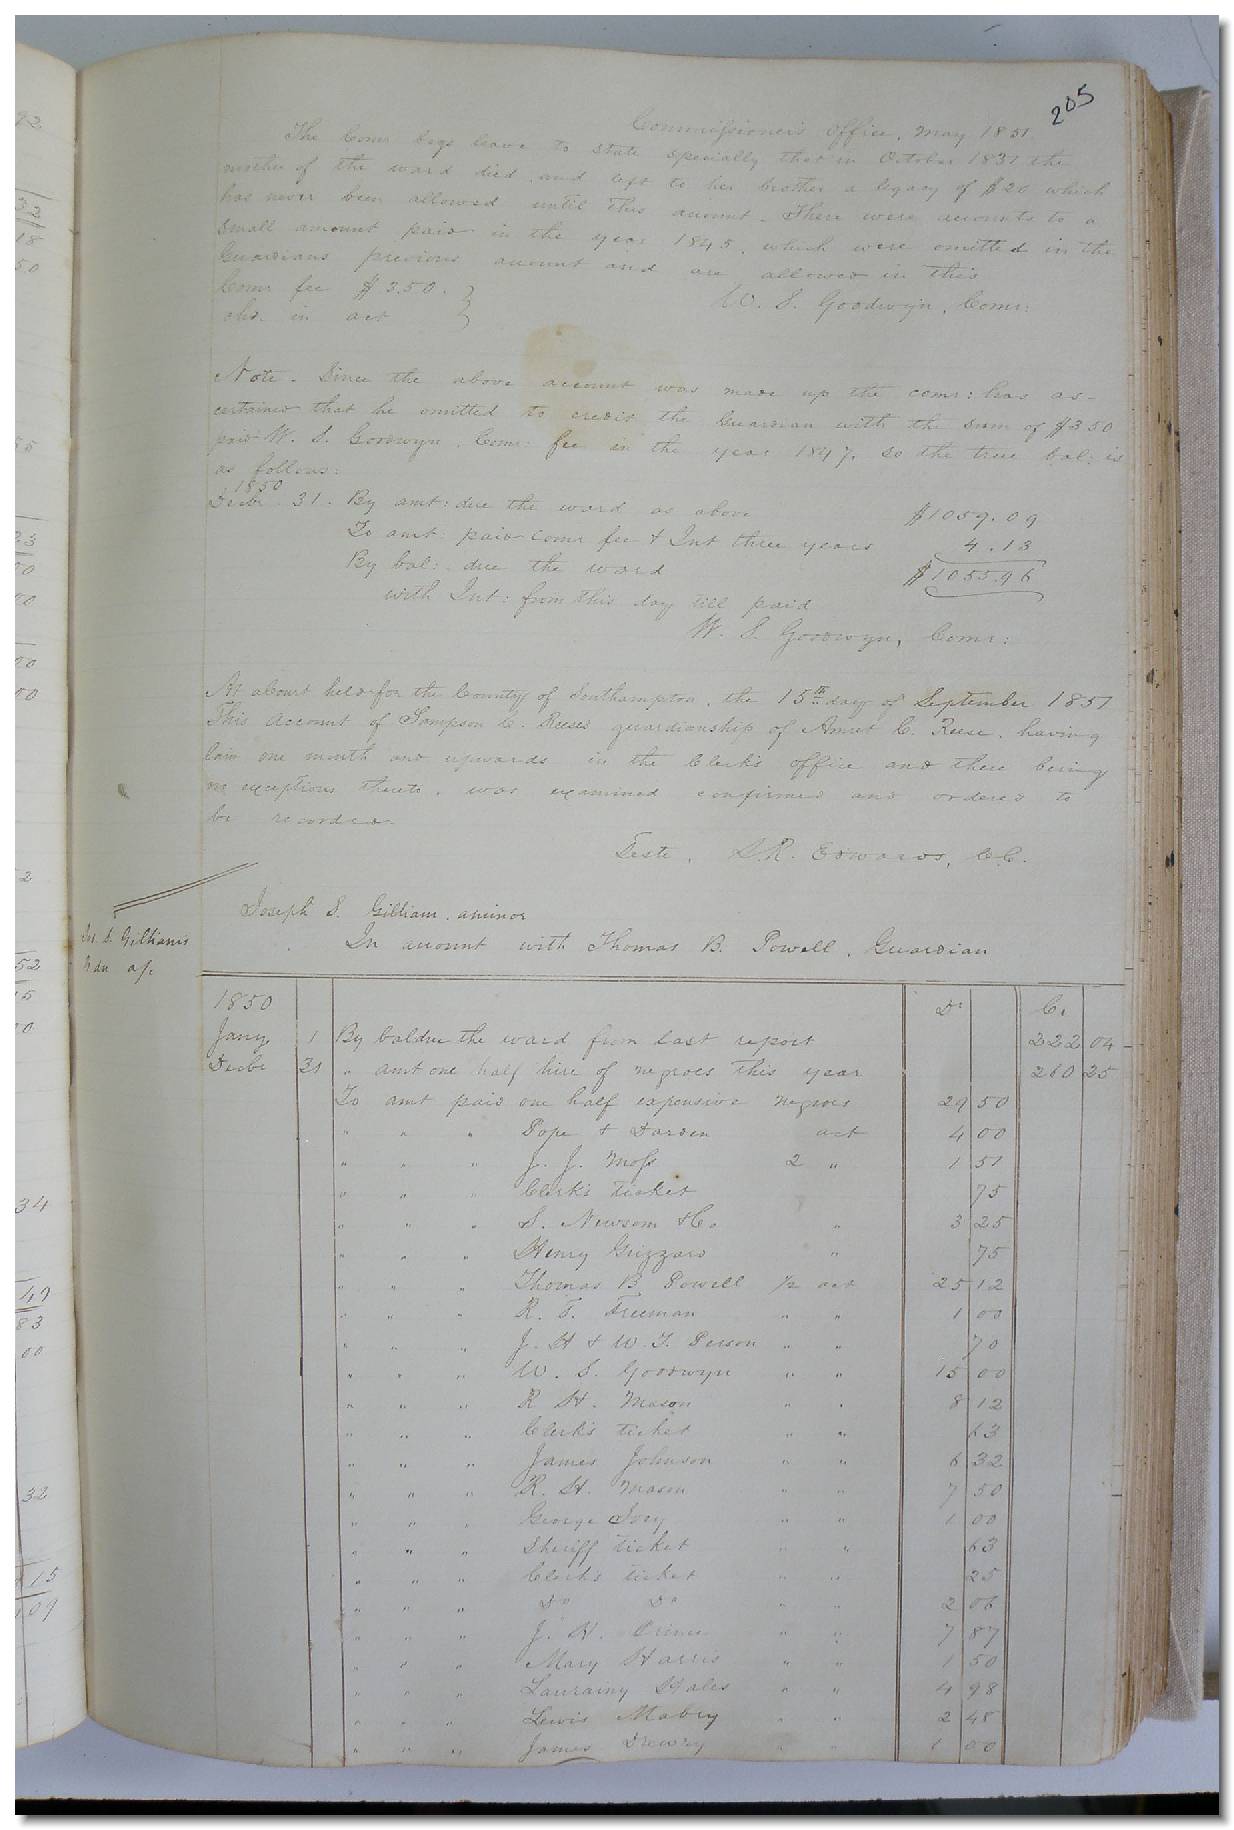 205
Commissioner's Office, May 1851.
The Comr begs leave to state specially that in October 1837 the
mother of the ward died and left to her brother a legacy of $20 which
has never been allowed until this account. There were accounts to a
small amount paid in the year 1845, which were omitted in the
Guardians previous account and are allowed in this
Comr fee $3.50. W. S. Goodwyn, Comr:
chd. in act
Note. Since the above account was made up the comr: has as-
certained that he omitted to credit the Guardian with the sum of $3.50
paid W. S. Goodwyn, Comr: fee in the year 1847, so the true bal: is
as follows:
1850
Decbr 31. By amt: due the ward as above $1059.09
To amt: paid comr fee & Int three years 4.13
By bal: due the ward $1055.96
with Int: from this day till paid
W. S. Goodwyn, Comr:
At a Court held for the County of Southampton, the 15th day of September 1851
This account of Sampson C. Reese's guardianship of Amut C. Reese, having
lain one month and upwards in the Clerk's office and there being
no exceptions thereto, was examined confirmed and ordered to
be recorded.
Teste, L. R. Edwards, C.C.
Joseph S. Gilliam, a minor
Jos. S. Gilliam's
In account with Thomas B. Powell, Guardian
Gdn a/c
1850 Dr Cr
Jany 1 By bal due the ward from last report 222 04
Decbr 31 " amt one half hire of negroes this year 260 25
To amt paid one half expensive negroes 29 50
" " " Pope & Darden act 4 00
" " " J. J. Moss 2 " 1 51
" " " Clerk's ticket 75
" " " S. Newsom & Co " 3 25
" " " Henry Grizzard " 75
" " " Thomas B. Powell 1/2 act 25 12
" " " R. T. Freeman " " 1 00
" " " J. H & W. T. Person " " 70
" " " W. S. Goodwyn " " 15 00
" " " R. H. Mason " " 8 12
" " " Clerk's ticket " " 63
" " " James Johnson " " 6 32
" " " R. H. Mason " " 7 50
" " " George Ivey " " 1 00
" " " Sheriff ticket " " 63
" " " Clerk's ticket " " 25
" " " Do Do " " 2 06
" " " J. H. Prince " " 7 87
" " " Mary Harris " " 1 50
" " " Laurainy Hales " " 4 98
" " " Lewis Mabry " " 2 48
" " " James Drewry " " 1 00